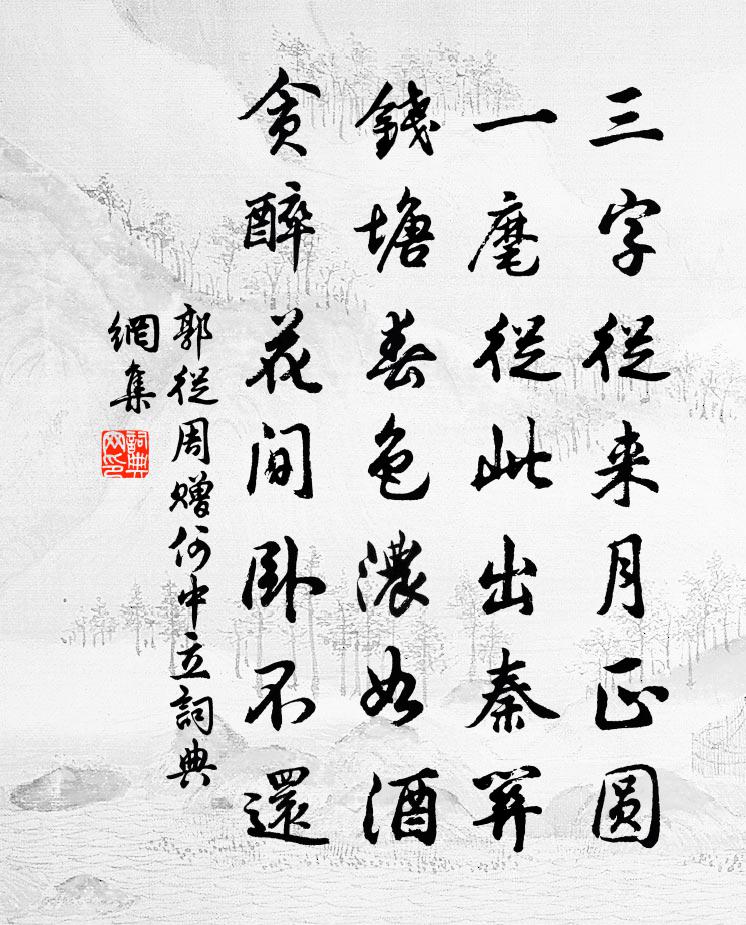 三字從来月正圓
一麾從此出秦關
錢塘春色濃如酒
貪醉花間卧不還
郭從周贈何中立詞典
網集
詞典
网印